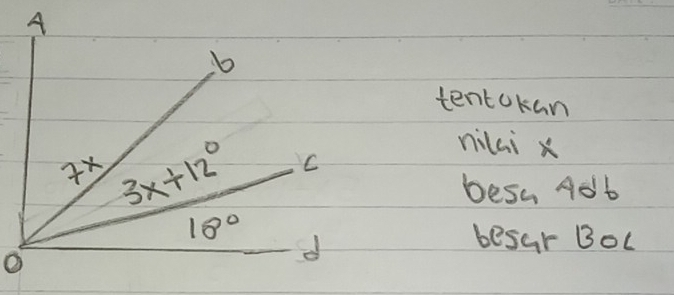 A
b
7x
3x+12°
c
18°
O
d
tentukan
nilai x
besar AOb
besar BOC